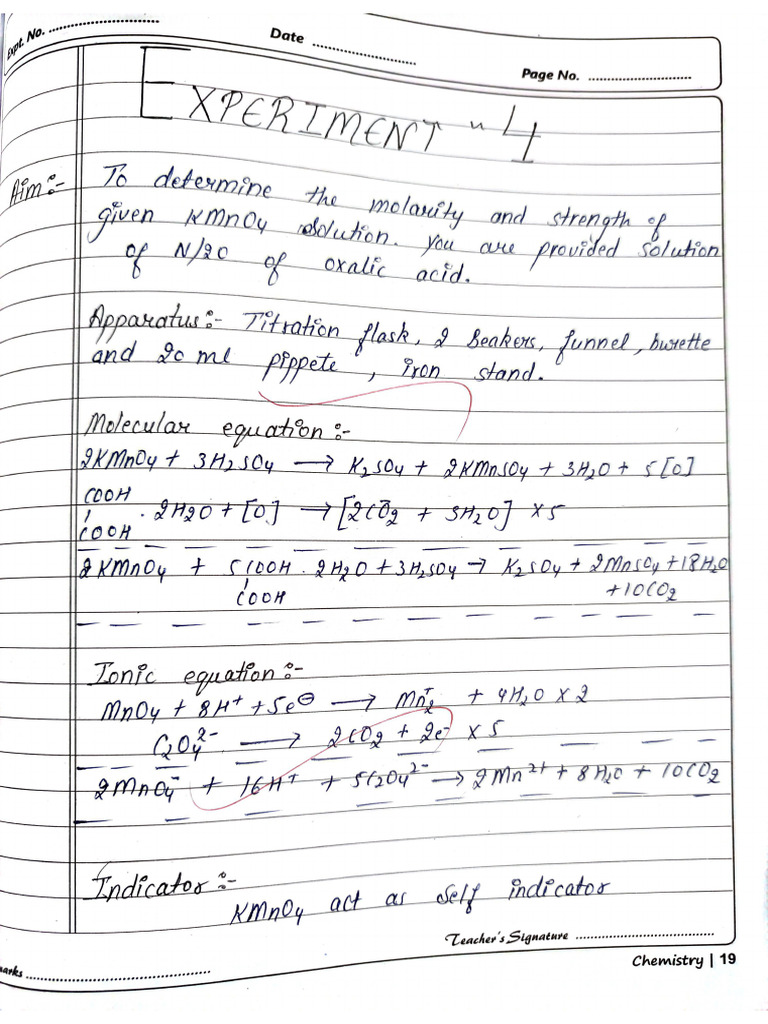 Expt. No. ..............................
Date ..............................
Page No. ..............................
EXPERIMENT - 4
Aim:- To determine the molarity and strength of
given KMnO4 solution. You are provided solution
of N/20 of oxalic acid.
Apparatus:- Titration flask, 2 beakers, funnel, burette
and 20 ml pippete, iron stand.
Molecular equation:-
2KMnO4 + 3H2SO4 → K2SO4 + 2KMnSO4 + 3H2O + 5[O]
COOH
COOH · 2H2O + [O] → [2CO2 + 3H2O] × 5
2KMnO4 + 5COOH · 2H2O + 3H2SO4 → K2SO4 + 2MnSO4 + 18H2O
COOH + 10CO2
Ionic equation:-
MnO4 + 8H+ + 5e⊖ → Mn2+ + 4H2O × 2
C2O4 2- → 2CO2 + 2e- × 5
2MnO4- + 16H+ + 5C2O4 2- → 2Mn2+ + 8H2O + 10CO2
Indicator:-
KMnO4 act as self indicator
Teacher's Signature ..............................
arks ..............................
Chemistry | 19